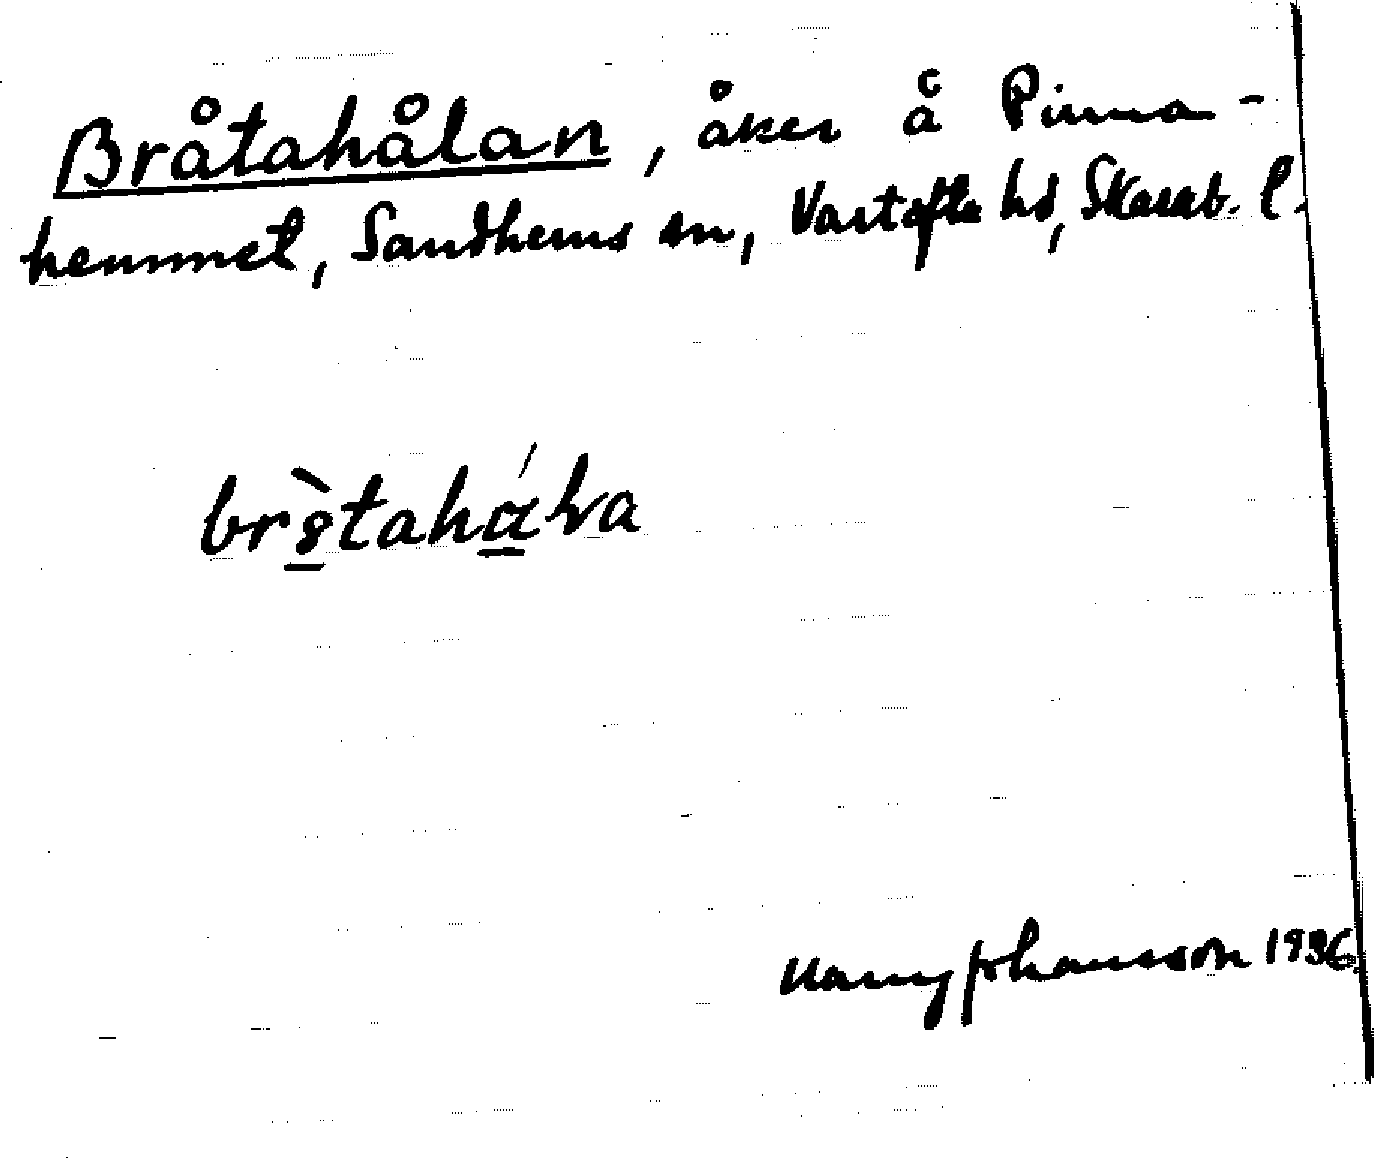 Bråtahålan, åker å Pinna-
hemmet, Sandhems sn, Vartofta hd, Skarab. l.
Nanny Johansson 1936